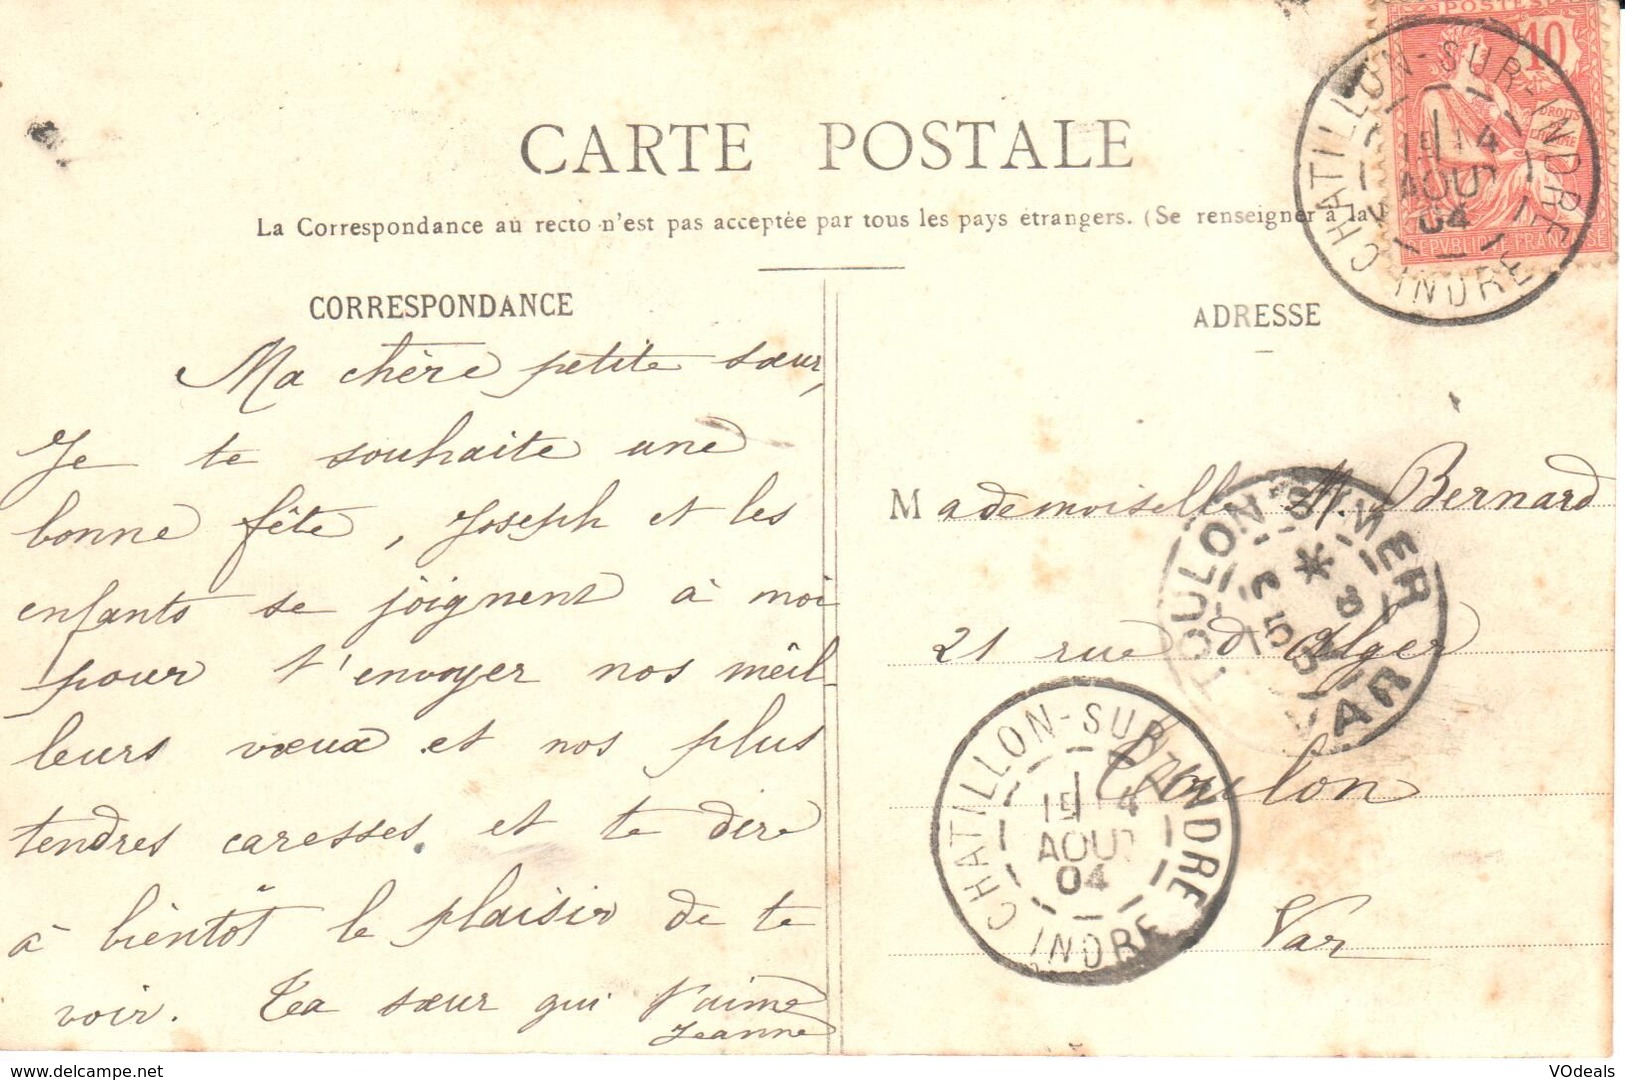 CARTE POSTALE
La Correspondance au recto n'est pas acceptée par tous les pays étrangers. (Se renseigner à la
CORRESPONDANCE
Ma chère petite sœur,
Je te souhaite une
bonne fête, Joseph et les
enfants se joignent à moi
pour t'envoyer nos meil
leurs vœux et nos plus
tendres caresses, et te dire
à bientôt le plaisir de te
voir. Ta sœur qui t'aime
Jeanne
ADRESSE
Mademoiselle M. Bernard
21 rue d'Alger
Toulon
Var
POSTES
10
DROITS
DE L'HOMME
REPVBLIQUE FRANÇAISE
CHATILLON-SUR-INDRE
14
AOUT
04
INDRE
TOULON S MER
VAR
CHATILLON-SUR-INDRE
14
AOUT
04
INDRE
delcampe.net
VOdeals